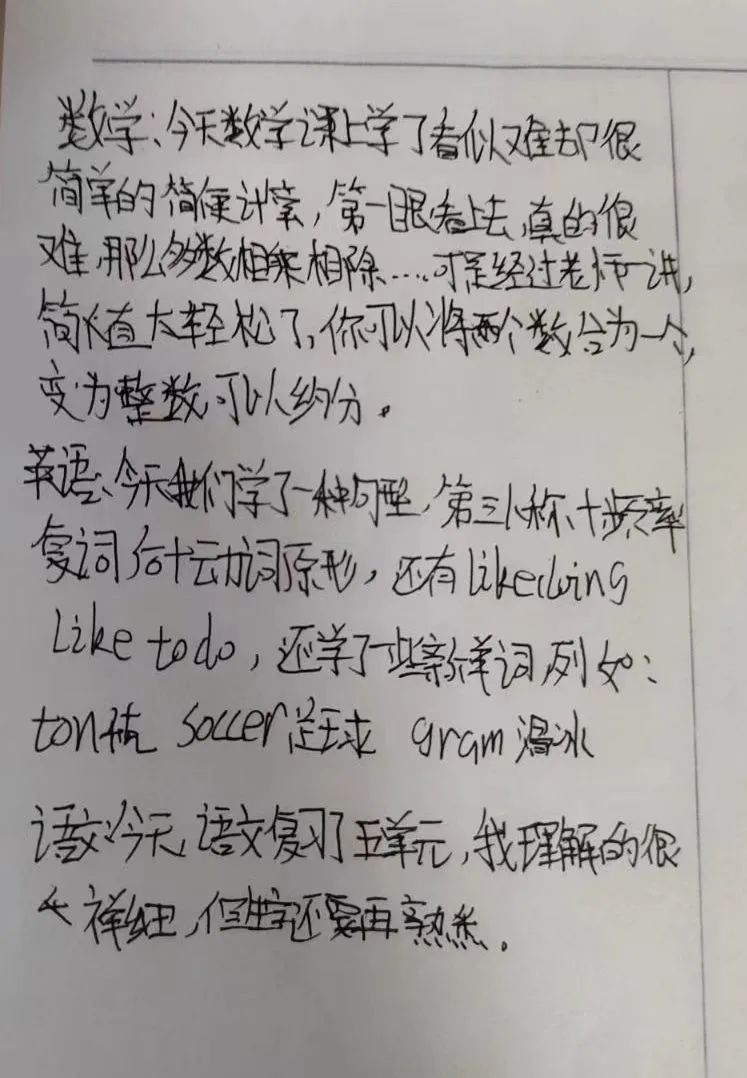 数学:今天数学课上学了看似难却很
简单的简便计算,第一眼看上去,真的很
难,那么多数相乘相除....可是经过老师一讲,
简直太轻松了,你可以将两个数合为一个,
变为整数,可以约分。
英语:今天我们学了一种句型,第三人称,十频率
复词后十动词原形,还有like doing
Like to do,还学了一些新单词,列如:
ton吨 Soccer足球 gram
语文:今天,语文复习了五单元,我理解的很
祥细,但生字还要再熟悉。